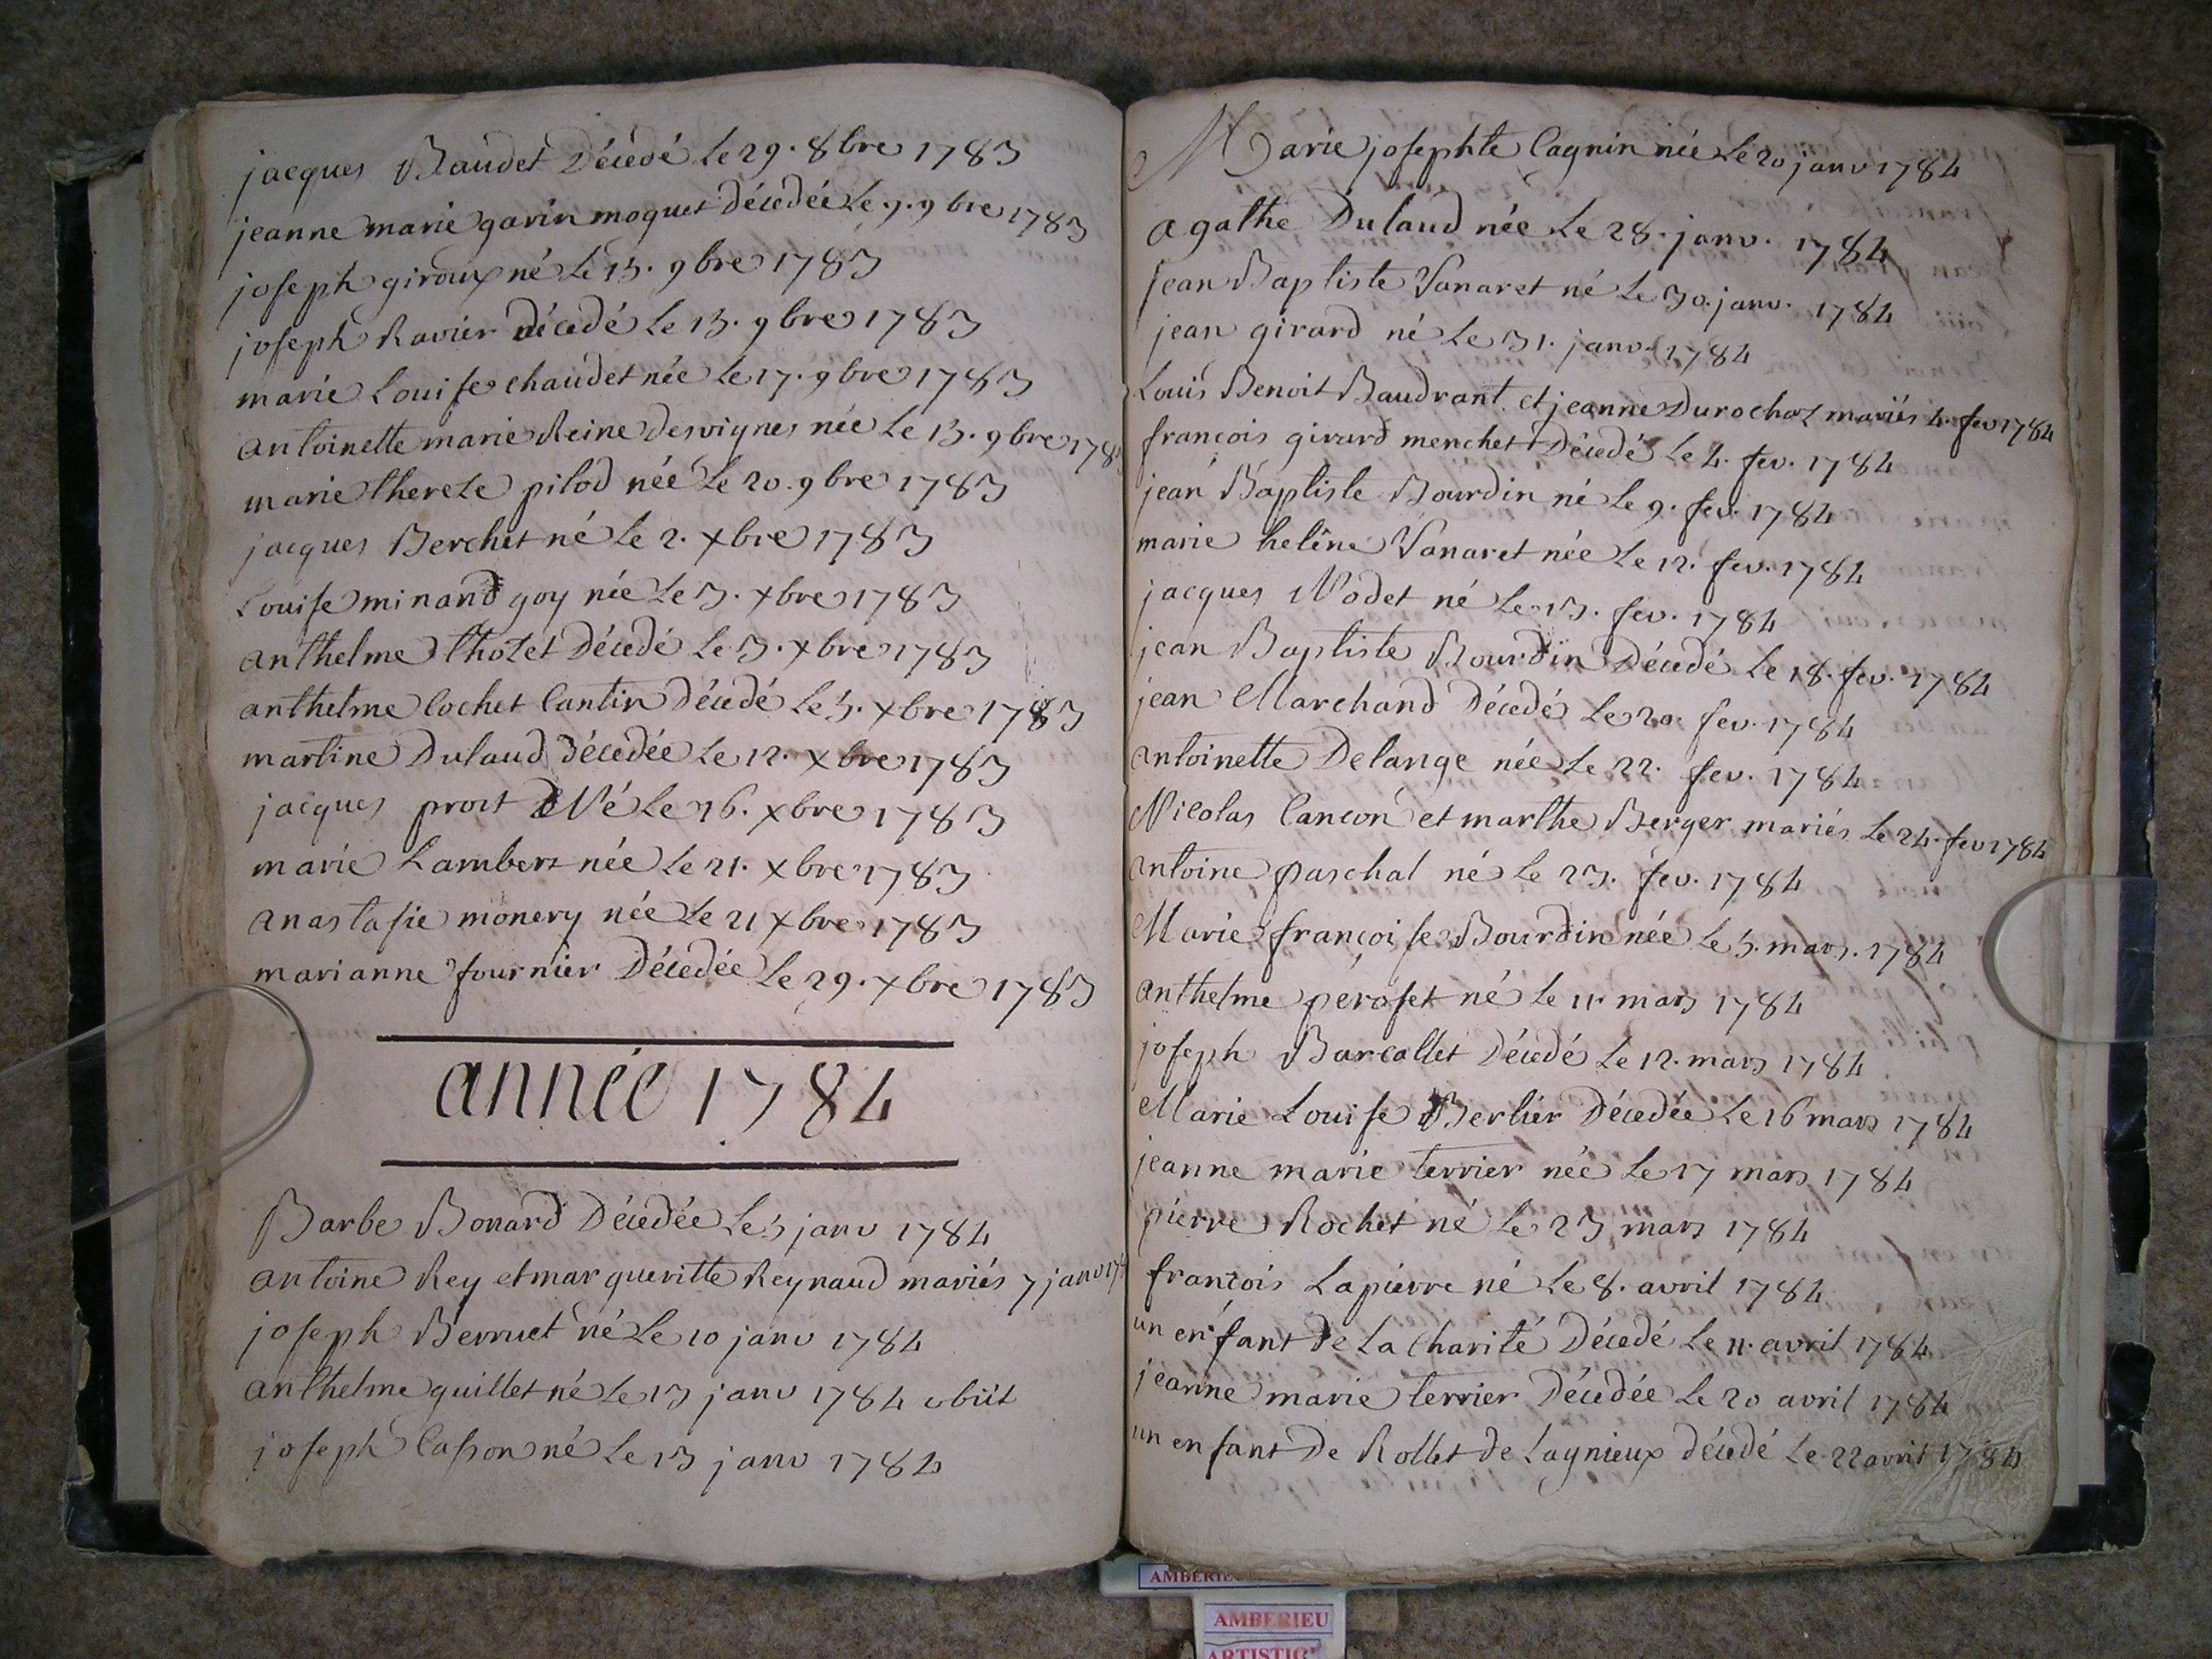 jacques Baudet Décédé Le 29. 8bre 1783
jeanne marie garin moquet décédée Le 9. 9bre 1783
joseph giroux né Le 13. 9bre 1783
joseph Ravier décedé Le 13. 9bre 1783
marie Louise chaudet née Le 17. 9bre 1783
antoinette marie Reine desvignes née Le 13. 9bre 178
marie therese pilod née Le 20. 9bre 1783
jacques Berchet né Le 2. xbre 1783
Louise minand goy née Le 3. xbre 1783
anthelme thozet Décedé Le 3. xbre 1783
anthelme Cochet Cantin Décedé Le 5. xbre 1783
martine Dulaud décedée Le 12. xbre 1783
jacques prost Né Le 16. xbre 1783
marie Lambert née Le 21. xbre 1783
anastasie monery née Le 21 xbre 1783
marianne fournier Décedée Le 29. xbre 1783
année 1784
Barbe Bonard Décedée Le 5 janv 1784
antoine Rey et margueritte Reynaud mariés 7 janv
joseph Berruet né Le 10 janv 1784
anthelme guillet né Le 13 janv 1784 obiit
joseph Casson né Le 13 janv 1784
Marie josephte Cagnin née Le 20 janv 1784
agathe Dulaud née Le 28. janv. 1784
jean Baptiste Vanaret né Le 30. janv. 1784
jean girard né Le 31. janv. 1784
Louis Benoit Baudrant et jeanne Durochat mariés 4. fev 1784
françois girard merchet Décedé Le 4. fev. 1784
jean Baptiste Bourdin né Le 9. fev. 1784
marie helêne Vanaret née Le 12. fev. 1784
jacques Nodet né Le 13. fev. 1784
jean Baptiste Bourdin Décedé Le 18. fev. 1784
jean Marchand Décedé Le 20. fev. 1784
antoinette Delange née Le 22. fev. 1784
Nicolas Cancon et marthe Berger mariés Le 24. fev 1784
antoine paschal né Le 23. fev. 1784
Marie françoise Bourdin née Le 5. mars. 1784
anthelme peroset né Le 11. mars 1784
joseph Barcallet Décedé Le 12. mars 1784
Marie Louise Berlier Décedée Le 16 mars 1784
jeanne marie terrier née Le 17 mars 1784
pierre Rochet né Le 23 mars 1784
françois Lapierre né Le 8. avril 1784
un enfant de La Charité Décedé Le 11. avril 1784
jeanne marie terrier Décedée Le 20 avril 1784
un enfant De Rollet de Lagnieux décedé Le 22 avril 1784
AMBERIEU
ARTISTIQ